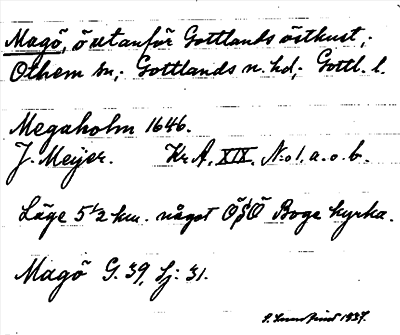 Magö, ö utanför Gottlands östkust,;
Othem sn.; Gottlands n. hd; Gottl. l.
Megaholm 1646.
J. Meijer. Kr A. XIX, No 1, a. o. b.
Läge 5 1/2 km. något ÖSÖ Boge kyrka.
Magö G. 39, Sj: 31.
1937.